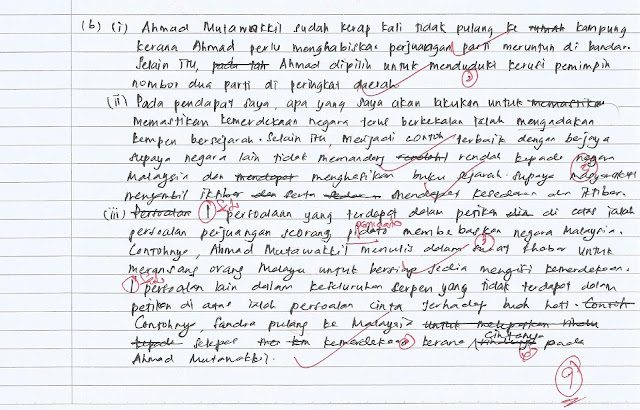 (b) (i) Ahmad Mutawakkil sudah kerap kali tidak pulang ke rumah kampung
kerana Ahmad perlu menghabiskan perjuangan parti meruntun di bandar.
Selain itu, Ahmad dipilih untuk menduduki kerusi pemimpin
nombor dua parti di peringkat daerah
(ii) Pada pendapat saya, apa yang saya akan lakukan untuk memastikan
memastikan kemerdekaan negara terus berkekalan ialah mengadakan
kempen bersejarah. Selain itu, menjadi contoh terbaik dengan berjaya
supaya negara lain tidak memandang rendah kepada negara
Malaysia dan menghasilkan buku sejarah supaya masyarakat
mengambil iktibar dan serta mendapat kesedaran dan iktibar.
(iii) Persoalan 1 persoalaan yang terdapat dalam petikan di atas ialah
persoalan perjuangan seorang membebaskan negara Malaysia.
Contohnya, Ahmad Mutawakkil menulis dalam surat khabar untuk
merangsang orang Melayu untuk bersiap sedia mengisi kemerdekaan.
1 persoalan lain dalam keseluruhan serpen yang tidak terdapat dalam
petikan di atas ialah persoalan cinta terhadap buah hati. Contoh
Contohnya, Sandra pulang ke Malaysia untuk melepaskan rindu
kepada selepas kemerdekaan kerana cintanya pada
Ahmad Mutawakkil.
9